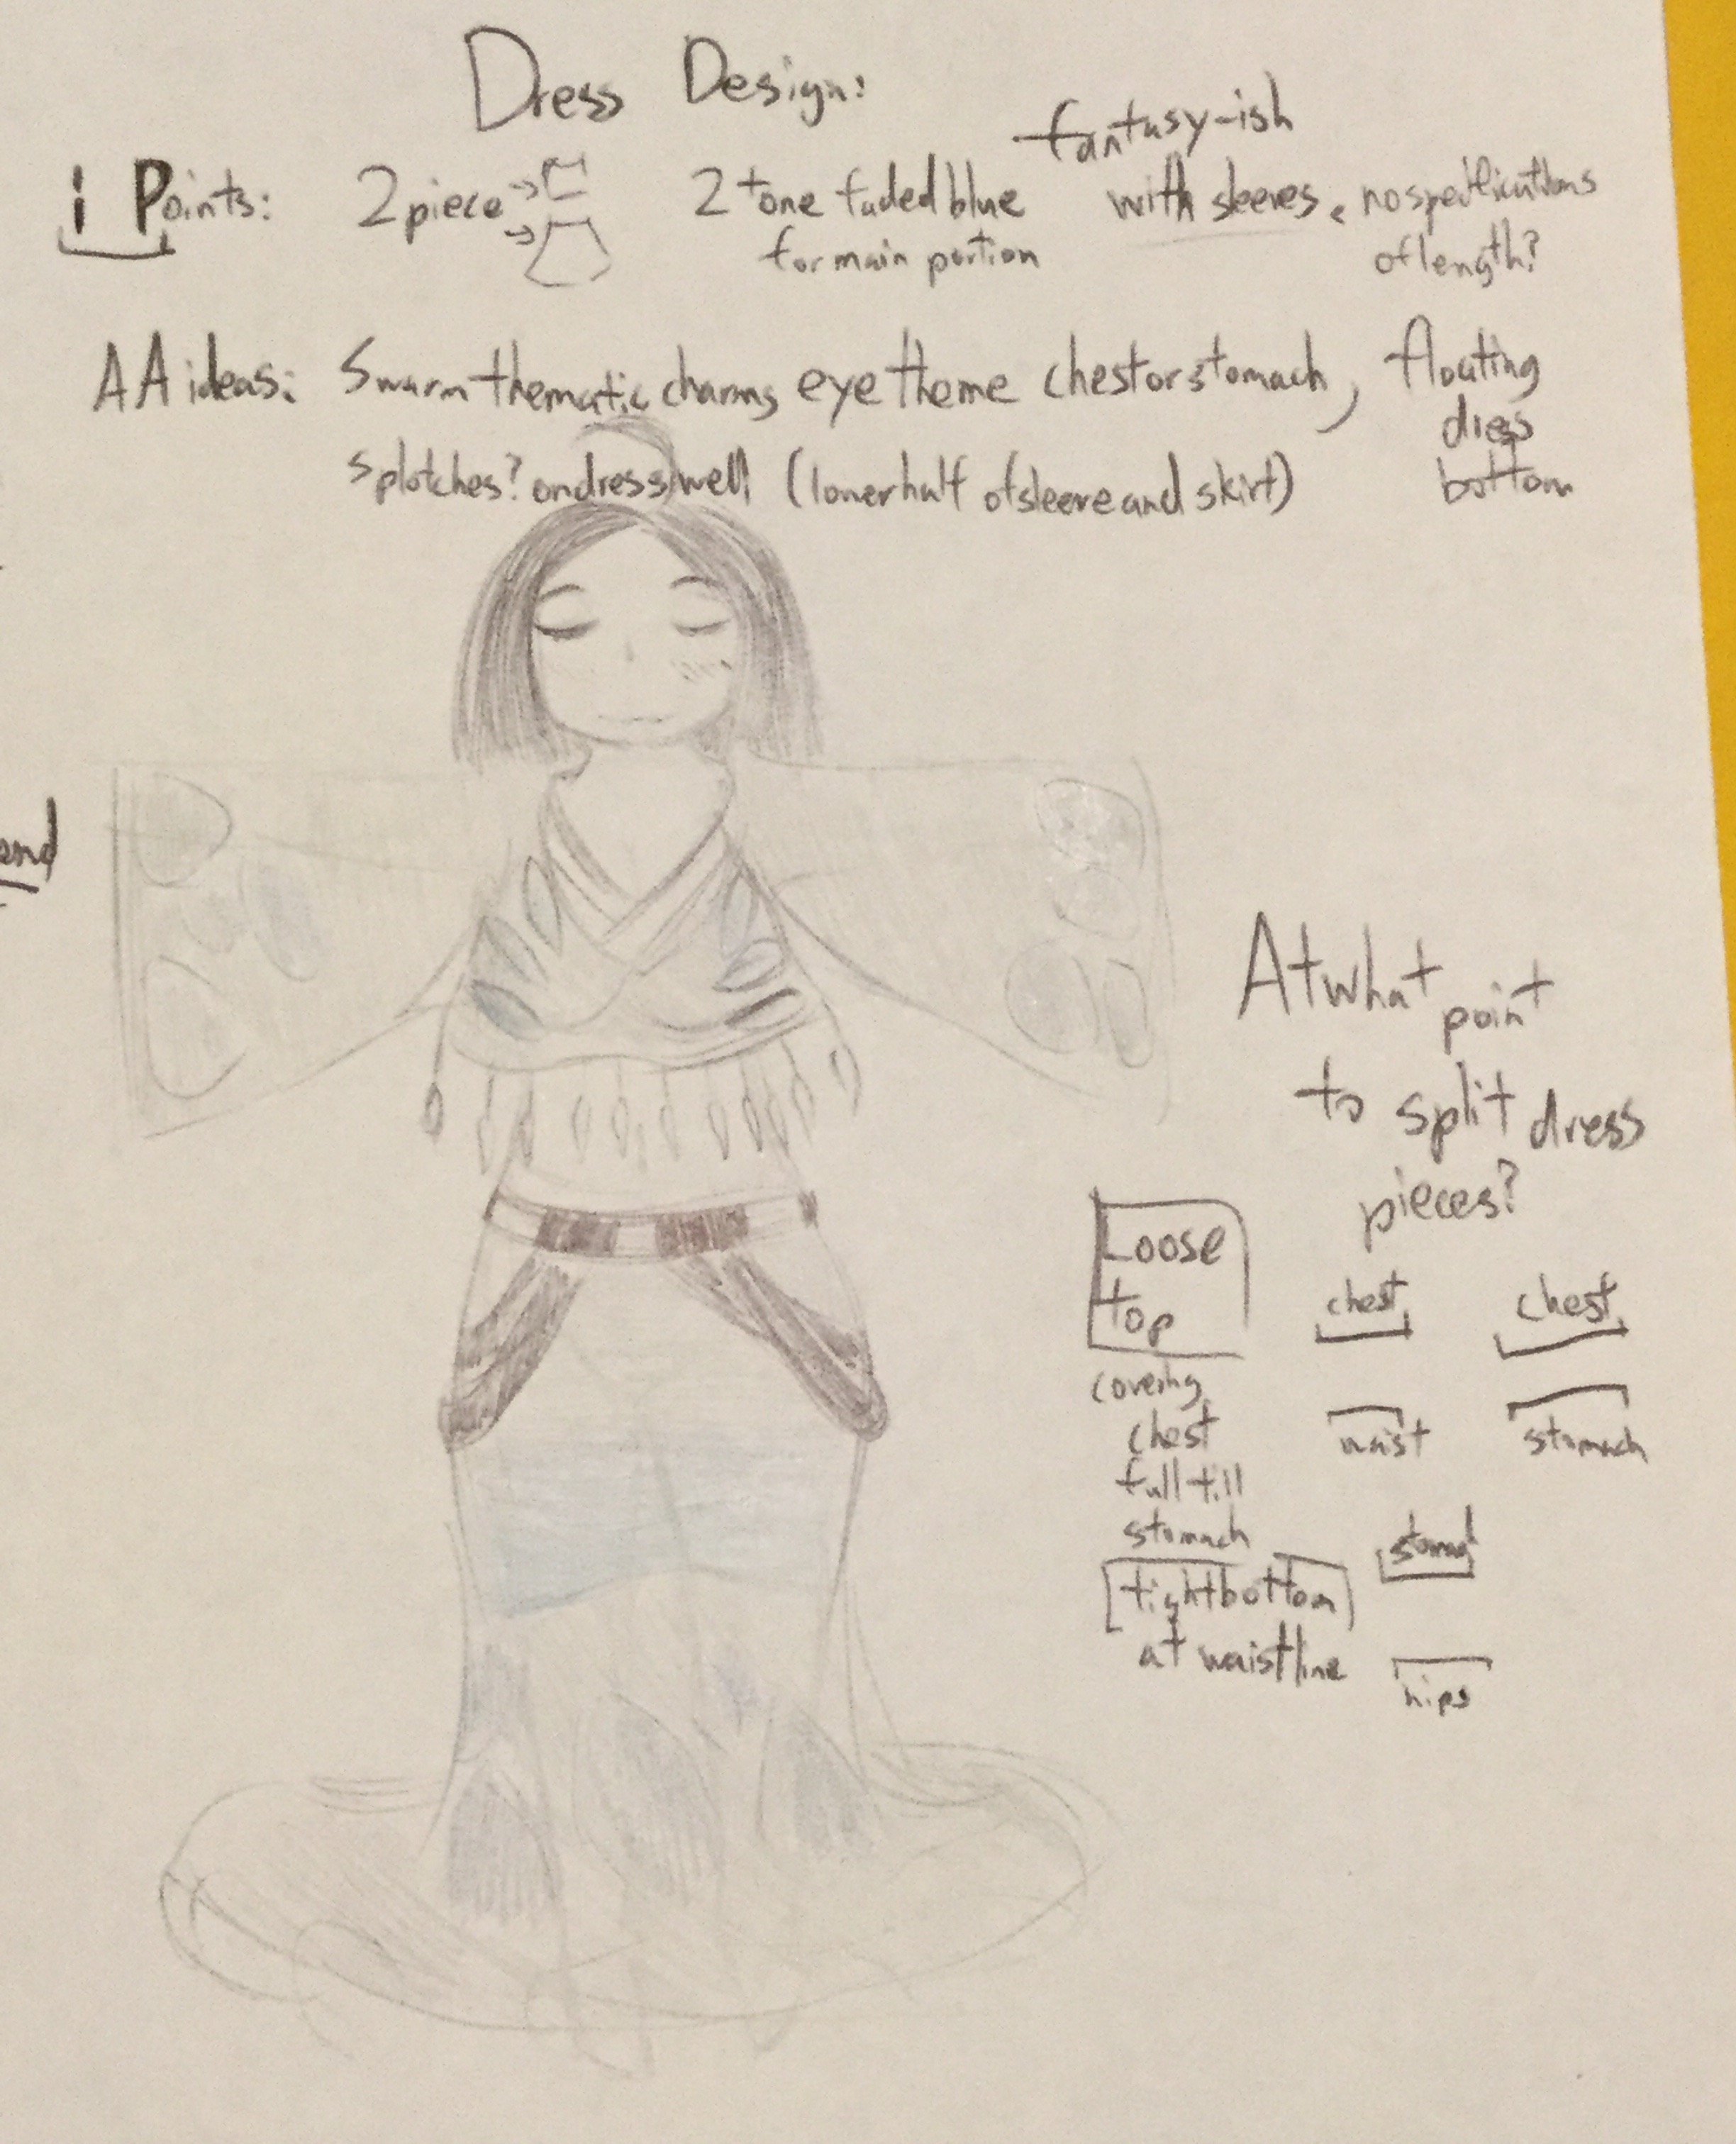 Dress Design:
fantasy-ish
i Points: 2 piece 2 tone faded blue with sleeves. no specifications
for main portion of length?
AA ideas: Swarm thematic charms eye theme chest or stomach, floating
dress
splotches? on dress well (lower half of sleeve and skirt) bottom
and
At what
point
to split dress
pieces?
Loose
top
chest chest
covering
chest waist stomach
full till
stomach stomach
tight bottom
at waistline hips